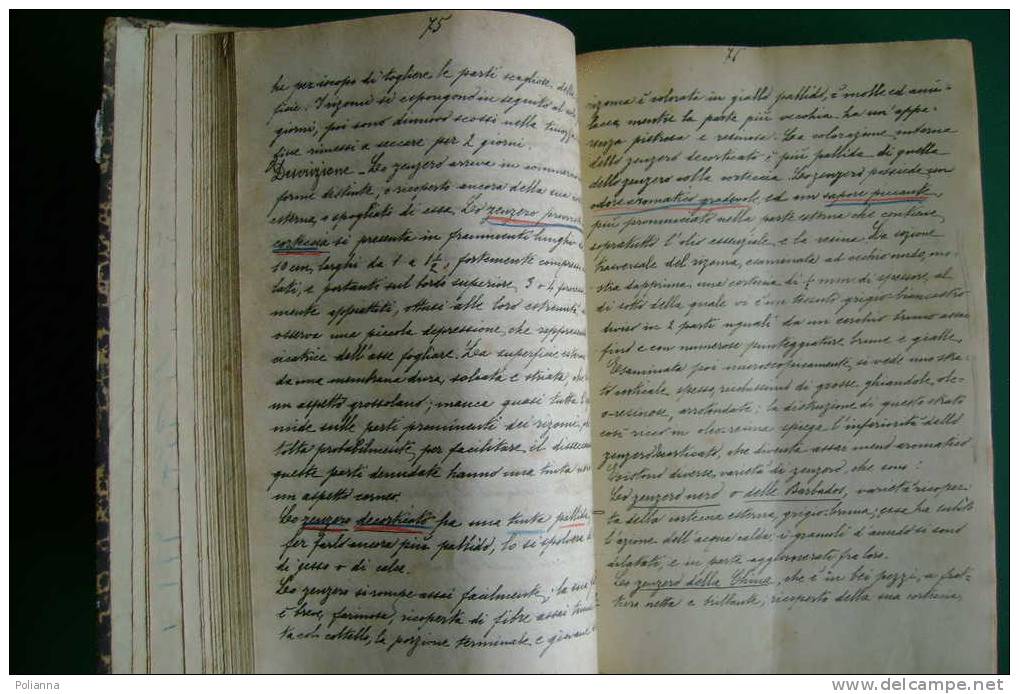 75
he per iscopo di togliere le parti scagliose, della
ficie. I rizomi si espongono in seguito al sole,
giorni, poi sono di nuovo scossi nella
fine rimessi a seccare per 2 giorni.
Descrizione - Lo zenzero arriva in commercio
forme distinte, o ricoperto ancora della sua
esterna, o spogliato di essa. Lo zenzero provvisto
corteccia si presenta in frammenti lunghi
10 cm, larghi da 1 a 1 1/2, fortemente compressi
lati, e portanti sul bordo superiore, 3 o 4
mente appiattiti, ottusi alle loro estremità
osserva una piccola depressione, che rappresenta
cicatrice dell'asse fogliare. La superficie esterna
da una membrana dura, solcata e striata, che
un aspetto grossolano; manca quasi tutta
nude sulle parti prominenti dei rizomi,
tolta probabilmente per facilitare il
queste parti denudate hanno una tinta
un aspetto corneo.
Lo zenzero decorticato ha una tinta pallida
per farlo ancora più pallido, lo si spolvera
di gesso o di calce.
Lo zenzero si rompe assai facilmente, la sua
è breve, farinosa, ricoperta di fibre assai
ta col coltello, la porzione terminale e giovane
76
rizoma è colorata in giallo pallido, è molle ed
lacea, mentre la parte più vecchia ha un'appa-
renza pietrosa e resinosa. La colorazione interna
dello zenzero decorticato è più pallida di quella
dello zenzero colla corteccia. Lo zenzero possiede un
odore aromatico gradevole, ed un sapore piccante
più pronunciato nella parte esterna che contiene
sopratutto l'olio essenziale e la resina. La sezione
trasversale del rizoma, esaminata ad occhio nudo, mo-
stra dapprima una corteccia di 1/2 mm di spessore, al
di sotto della quale vi è un tessuto grigio-biancastro
diviso in 2 parti uguali da un cerchio bruno assai
fino e con numerose punteggiature brune e gialle.
Esaminata poi microscopicamente, si vede uno stra-
to corticale spesso, ricchissimo di grosse ghiandole, ole-
o-resinose, arrotondate; la distruzione di questo strato
così ricco in oleo-resina spiega l'inferiorità dello
zenzero decorticato, che diventa assai meno aromatico
Esistono diverse varietà di zenzero, che sono:
Lo zenzero nero o delle Barbados, varietà ricoper-
ta della corteccia esterna, grigio-bruna; essa ha subito
l'azione dell'acqua calda; i granuli d'amido si sono
dilatati, e in parte agglomerati fra loro.
Lo zenzero della China, che è in bei pezzi, a frat-
tura netta e brillante, ricoperto della sua corteccia,
Polianna
www.delcampe.net